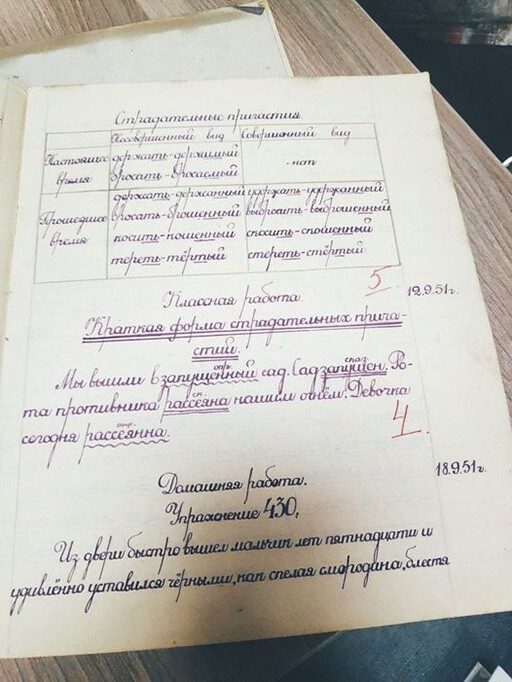 Страдательные причастия
Несовершенный вид Совершенный вид
Настоящее держать-держимый
время бросать-бросаемый -нет
держать-держанный удержать-удержанный
Прошедшее бросать-брошенный выбросить-выброшенный
время косить-кошенный скосить-скошенный
тереть-тёртый стереть-стёртый
5
12.9.51г.
Классная работа.
Краткая форма страдательных прича-
стий.
опр. сказ.
Мы вышли в запущенный сад. Сад запущен. Ро-
ск.
та противника рассеяна нашим огнём. Девочка
опр.
сегодня рассеянна.
4
18.9.51г.
Домашняя работа.
Упражнение 430.
Из двери быстро вышел мальчик лет пятнадцати и
удивлённо уставился чёрными, как спелая смородина, блестя